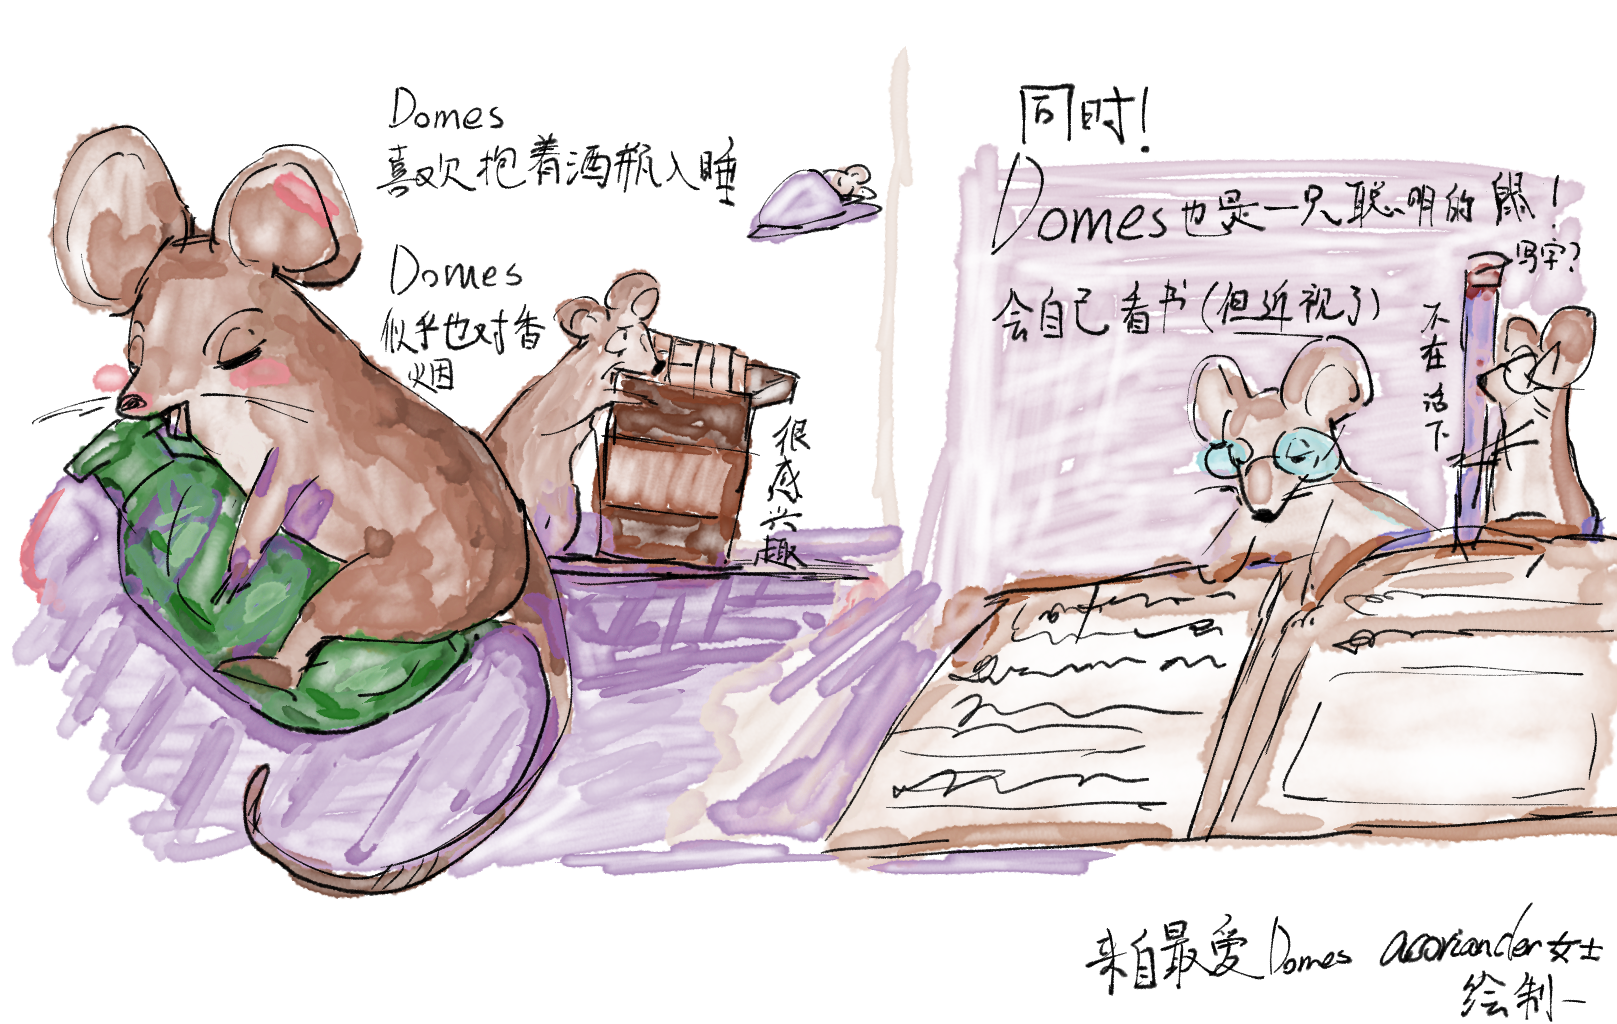 Domes
喜欢抱着酒瓶入睡
Domes
似乎也对香
烟
很感兴趣
同时!
Domes也是一只聪明的鼠!
会自己看书(但近视了)
写字?
不在话下
来自最爱Domes acoriander女士
绘制—